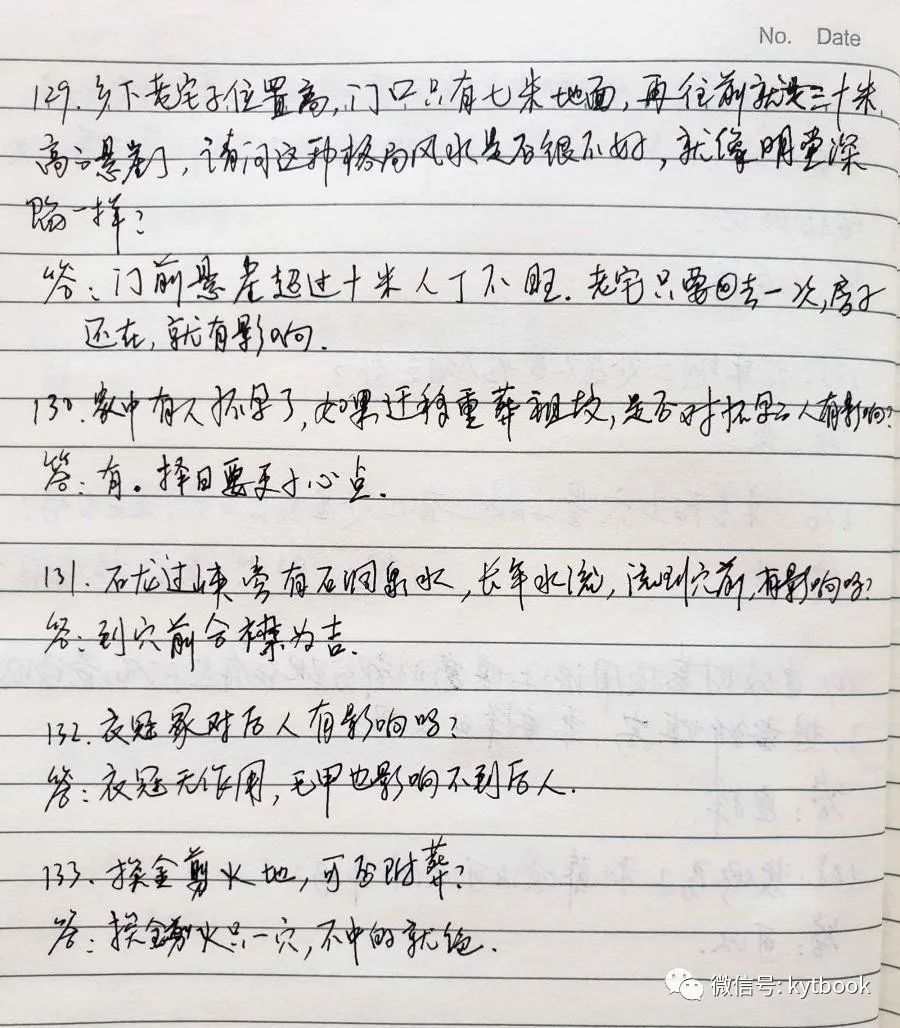 No. Date
129. 乡下老宅子位置高,门口只有七米地面,再往前就是三十米
高的悬崖,请问这种格局风水是否很不好,就像明堂深
陷一样?
答:门前悬崖超过十米人丁不旺.老宅只要回去一次,房子
还在,就有影响.
130.家中有人怀孕了,如果迁移重葬祖坟,是否对怀孕的人有影响?
答:有。择日要更小心点.
131.石龙过峡旁有石洞泉水,长年水流,流到穴前,有影响吗?
答:到穴前合襟为吉.
132.衣冠冢对后人有影响吗?
答:衣冠无作用,毛甲也影响不到后人.
133. 探金剪火地,可否附葬?
答:探金剪火只一穴,不中的就绝.
微信号: kytbook